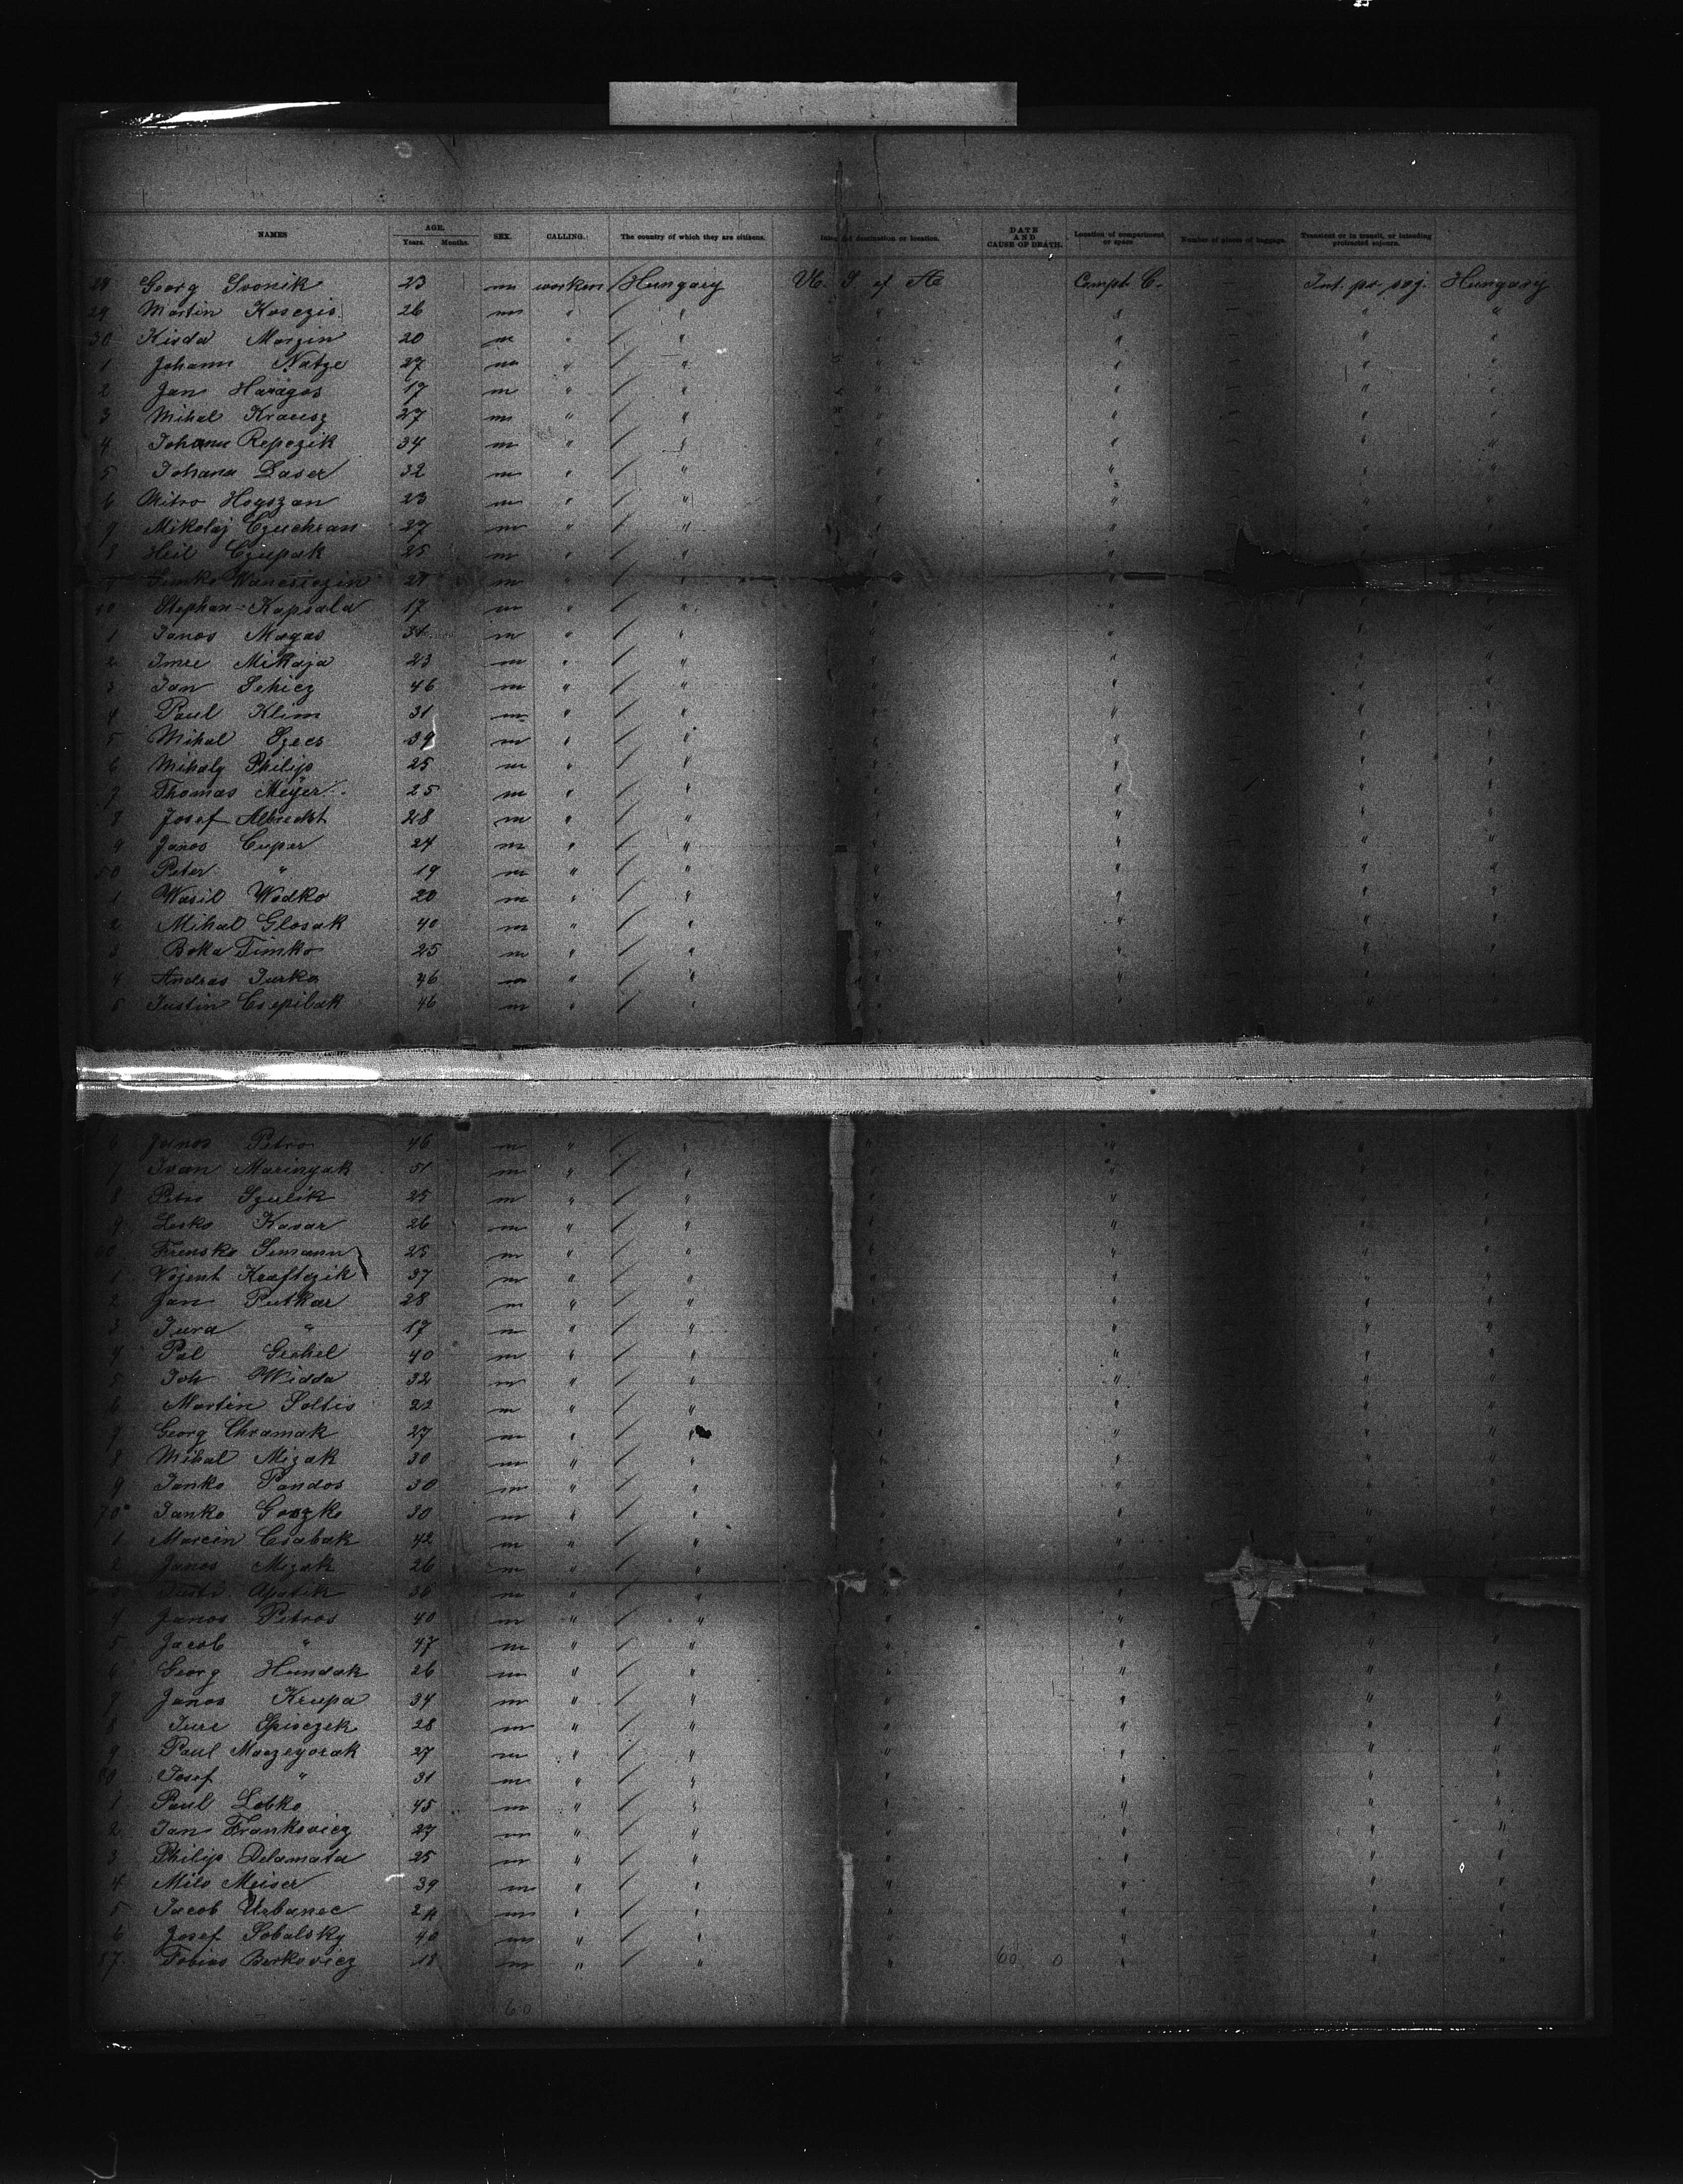 NAMES AGE. Years. Months. SEX. CALLING. The country of which they are citizens. Intended destination or location. DATE AND CAUSE OF DEATH. Location of compartment or space Number of pieces of baggage. Transient or in transit, or intending protracted sojourn.
28 Georg Svonik 23 m worker / Hungary U. S. of A Compt. C. - Int. pr. soj. Hungary
29 Martin Kosczis 26 m " / " " " - " "
30 Kisda Marzin 20 m " / " " " - " "
1 Johann Natze 27 m " / " " " - " "
2 Jan Haragos 17 m " / " " " - " "
3 Mihal Krausz 27 m " / " " " - " "
4 Johann Repczik 34 m " / " " " - " "
5 Johann Daser 32 m " / " " " - " "
6 Mitro Hoyszan 23 m " / " " " - " "
7 Mikolaj Czuchran 27 m " / " " " - " "
8 Heil Czupak 25 m " / " " " "
Simko m " / " " "
40 Stephan Kapsala 17 m " / " " " " "
1 Janos Magas 31 m " / " " " - " "
2 Imre Mikaja 23 m " / " " " - " "
3 Jan Sehicz 46 m " / " " " - " "
4 Paul Klim 31 m " / " " " - " "
5 Mihal Szecs 39 m " / " " " - " "
6 Mihaly Philip 25 m " / " " " - " "
7 Thomas Meyer 25 m " / " " " - " "
8 Josef Albrecht 28 m " / " " " - " "
9 Janos Cuper 24 m " / " " " - " "
50 Peter " 19 m " / " " " - " "
1 Wasil Wodko 20 m " / " " " - " "
2 Mihal Glosak 40 m " / " " " - " "
3 Boka Timko 25 m " / " " " - " "
4 Andras Jurko 46 m " / " " " - " "
5 Justin Csepilak 46 m " / " " " - " "
6 Janos Petro 46 m " / " " " - " "
7 Ivan Marinyak 51 m " / " " " - " "
8 Petro Szulik 25 m " / " " " - " "
9 Lesko Kavar 26 m " / " " " - " "
60 Frensko Simann 25 m " / " " " - " "
1 Vojent Kraftczik 37 m " / " " " - " "
2 Jan Putkar 28 m " / " " " - " "
3 Jura " 17 m " / " " " - " "
4 Pal Gechel 40 m " / " " " - " "
5 Joh Widda 32 m " / " " " - " "
6 Martin Soltis 22 m " / " " " - " "
7 Georg Chramak 27 m " / " " " - " "
8 Mihal Mizak 30 m " / " " " - " "
9 Janko Pandos 30 m " / " " " - " "
70 Janko Goszko 30 m " / " " " - " "
1 Marcin Csabak 42 m " / " " " - " "
2 Janos Mizak 26 m " / " " " "
Apatik 36 m " / " " " "
4 Janos Petros 40 m " / " " " " "
5 Jacob " 47 m " / " " " - " "
6 Georg Hundak 26 m " / " " " - " "
7 Janos Krupa 34 m " / " " " - " "
8 Jure Spisczek 28 m " / " " " - " "
9 Paul 27 m " / " " " - " "
80 Josef " 31 m " / " " " - " "
1 Paul Lobko 45 m " / " " " - " "
2 Jan Frankovicz 27 m " / " " " - " "
3 Philip Delamata 25 m " / " " " - " "
4 Milo Meiser 39 m " / " " " - " "
5 Jacob Urbanec 24 m " / " " " - " "
6 Josef Sobalsky 40 m " / " " " - " "
87 Tobias Berkovicz 18 m " / " " 60 0 " - " "
60